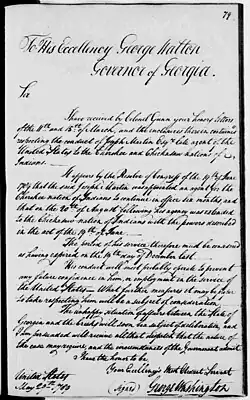 79
To His Excellency George Walton
Governor of Georgia.
Sir
Have received by Colonel Gunn your honors letters
of the 11th and 13th of March, and the enclosures therein contained
respecting the conduct of Joseph Martin Esqr late agent of the
United States to the Cherokee and Chickasaw nations of
Indians.
It appears by the Resolve of Congress of the 19th June
1788 that the said Joseph Martin was appointed an agent for the
Cherokee nation of Indians to continue in office six months and
that on the 20th of August following his agency was extended
to the Chickasaw nation of Indians with the powers described
in the act of the 19th of June.
The duties of his service therefore must be considered
as having expired on the 19th day of December last.
His conduct will most probably operate to prevent
any future confidence in or employment in the service of
the United States. What further measures it may be proper
to take respecting him will be a subject of consideration.
The unhappy situation of affairs between the State of
Georgia and the Creeks will soon be a subject of deliberation, and
I am persuaded will receive all that dispatch that the nature of
the case may require and the circumstances of the Government admit.
I have the honor to be,
Your Excellency's Most Obedient Servant
United States
May 29th
(Signed) George Washington